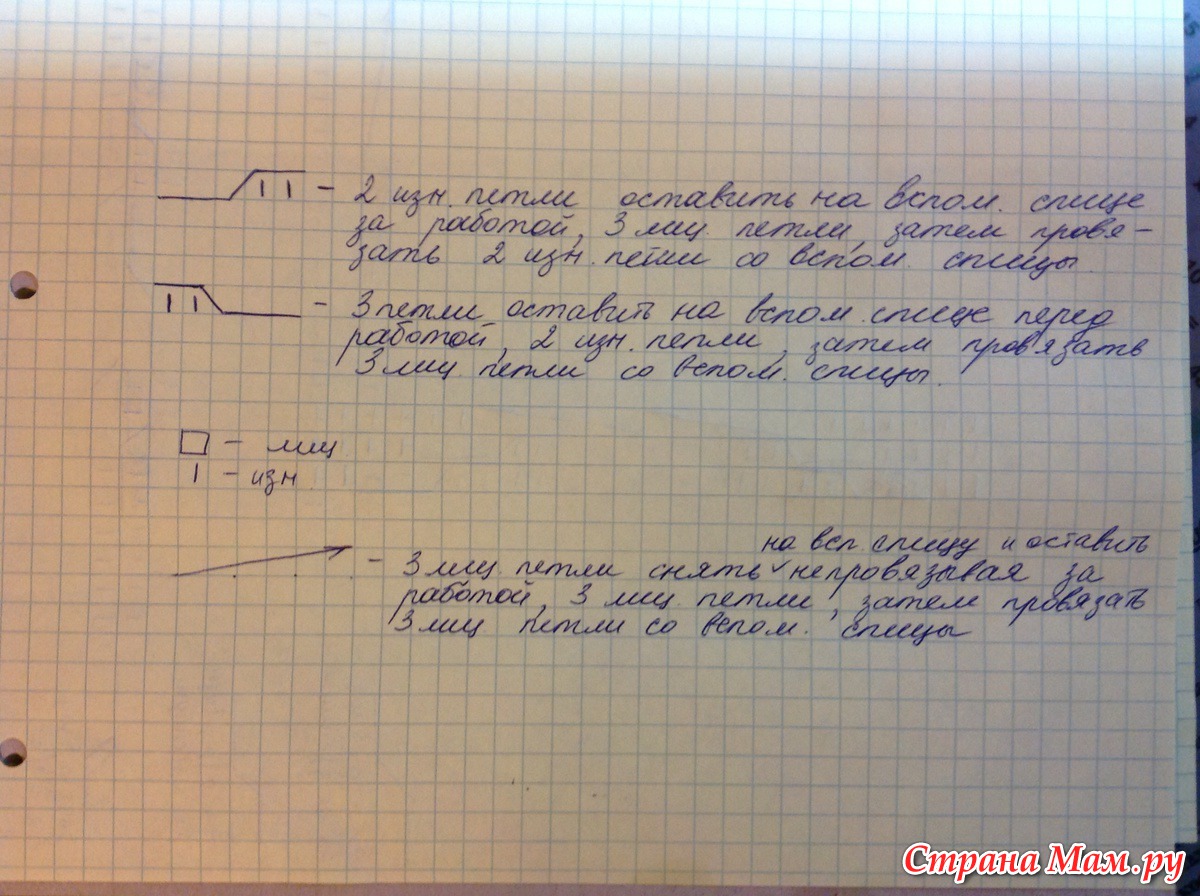 – 2 изн. петли оставить на вспом. спице
за работой, 3 лиц петли, затем провя-
зать 2 изн. петли со вспом. спицы.
– 3 петли оставить на вспом. спице перед
работой, 2 изн. петли, затем провязать
3 лиц петли со вспом. спицы.
□ – лиц
| – изн
на всп. спицу и оставить
– 3 лиц. петли снять ∨ непровязывая за
работой, 3 лиц. петли, затем провязать
3 лиц петли со вспом. спицы
Страна Мам.ру